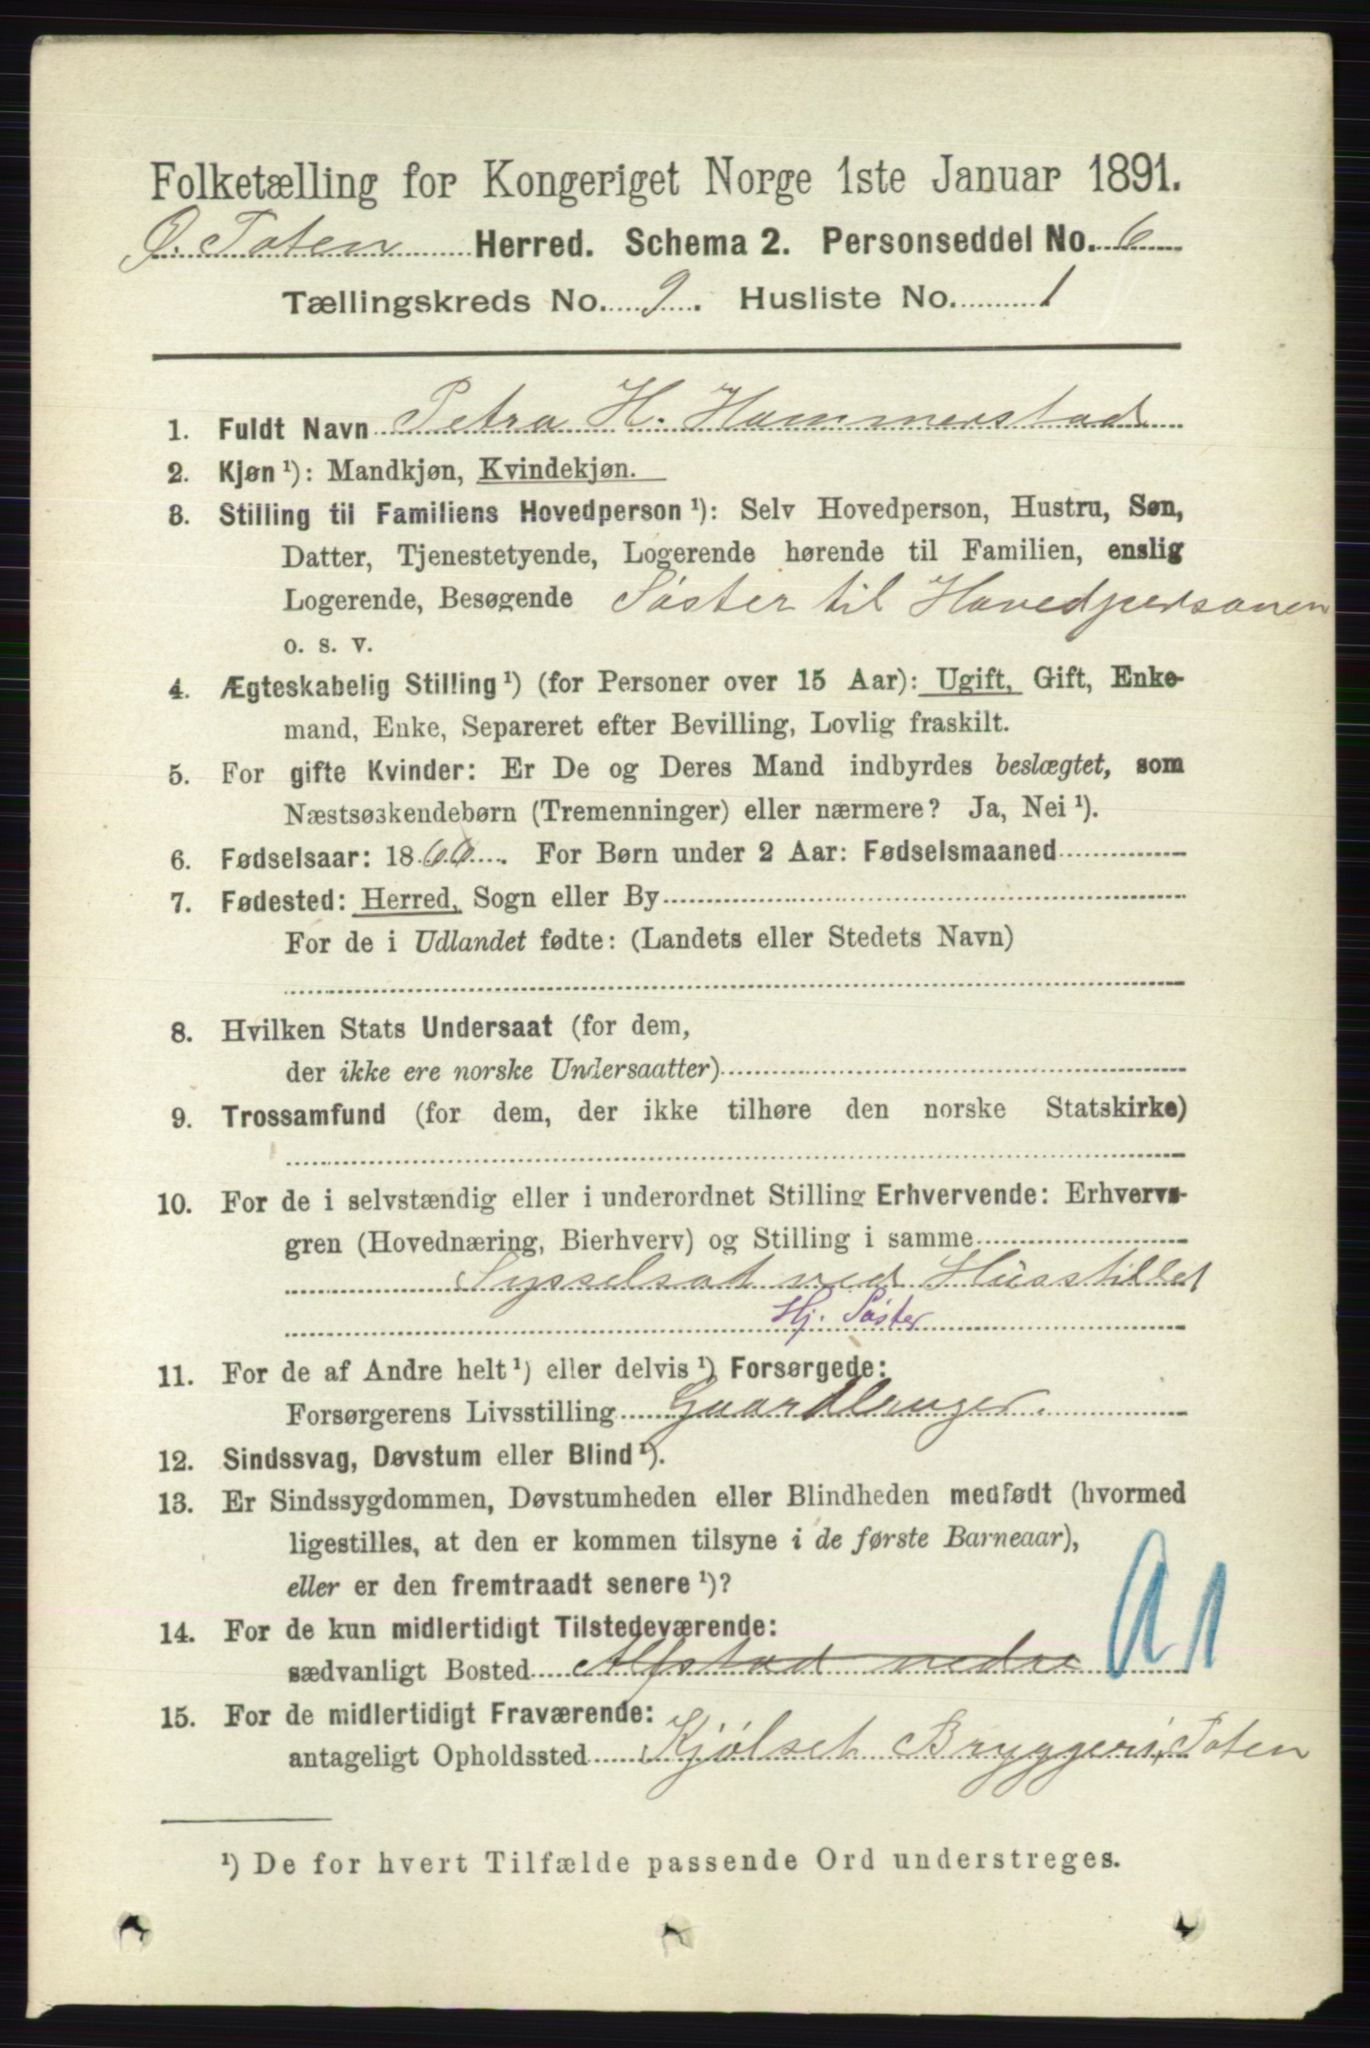 Folketælling for Kongeriget Norge 1ste Januar 1891.
Ø. Toten Herred. Schema 2. Personseddel No. 6
Tællingskreds No. 9. Husliste No. 1
1. Fuldt Navn Petra H. Hammerstad
2. Kjøn ¹): Mandkjøn, Kvindekjøn.
3. Stilling til Familiens Hovedperson ¹): Selv Hovedperson, Hustru, Søn,
Datter, Tjenestetyende, Logerende hørende til Familien, enslig
Logerende, Besøgende Søster til Hovedpersonen
o. s. v.
4. Ægteskabelig Stilling ¹) (for Personer over 15 Aar): Ugift, Gift, Enke-
mand, Enke, Separeret efter Bevilling, Lovlig fraskilt.
5. For gifte Kvinder: Er De og Deres Mand indbyrdes beslægtet, som
Næstsøskendebørn (Tremenninger) eller nærmere? Ja, Nei ¹).
6. Fødselsaar: 1860. For Børn under 2 Aar: Fødselsmaaned
7. Fødested: Herred, Sogn eller By
For de i Udlandet fødte: (Landets eller Stedets Navn)
8. Hvilken Stats Undersaat (for dem,
der ikke ere norske Undersaatter)
9. Trossamfund (for dem, der ikke tilhøre den norske Statskirke)
10. For de i selvstændig eller i underordnet Stilling Erhvervende: Erhvervs-
gren (Hovednæring, Bierhverv) og Stilling i samme
Sysselsat ved Husstillet
Hj. Søster
11. For de af Andre helt ¹) eller delvis ¹) Forsørgede:
Forsørgerens Livsstilling Gaardbruger.
12. Sindssvag, Døvstum eller Blind ¹).
13. Er Sindssygdommen, Døvstumheden eller Blindheden medfødt (hvormed
ligestilles, at den er kommen tilsyne i de første Barneaar),
eller er den fremtraadt senere ¹)?
14. For de kun midlertidigt Tilstedeværende:
sædvanligt Bosted Alfstad nedre
15. For de midlertidigt Fraværende:
antageligt Opholdssted Kjølset Bryggeri, Toten
¹) De for hvert Tilfælde passende Ord understreges.